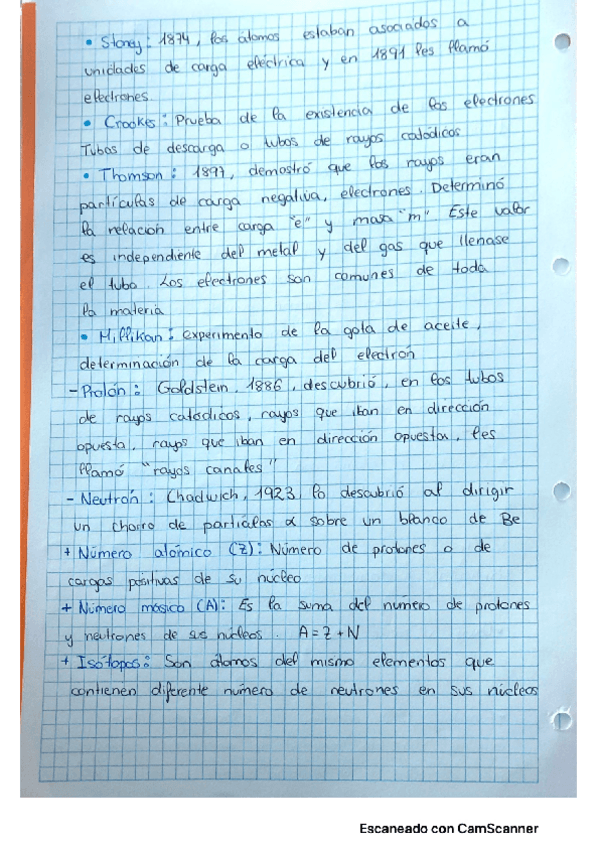 • Stoney: 1874, los átomos estaban asociados a
unidades de carga eléctrica y en 1891 les llamó
electrones.
• Crookes: Prueba de la existencia de los electrones
Tubos de descarga o tubos de rayos catódicos
• Thomson: 1897, demostró que los rayos eran
partículas de carga negativa, electrones. Determinó
la relación entre carga "e" y masa "m". Este valor
es independiente del metal y del gas que llenase
el tubo. Los electrones son comunes de toda
la materia
• Millikan: experimento de la gota de aceite,
determinación de la carga del electrón
- Protón: Goldstein, 1886, descubrió, en los tubos
de rayos catódicos, rayos que iban en dirección
opuesta, rayos que iban en dirección opuestas, les
llamó "rayos canales"
- Neutrón: Chadwich, 1923, lo descubrió al dirigir
un chorro de partículas α sobre un blanco de Be
+ Número atómico (Z): Número de protones o de
cargas positivas de su núcleo
+ Número másico (A): Es la suma del número de protones
y neutrones de sus núcleos. A=Z+N
+ Isótopos: Son átomos del mismo elementos que
contienen diferente número de neutrones en sus núcleos
Escaneado con CamScanner